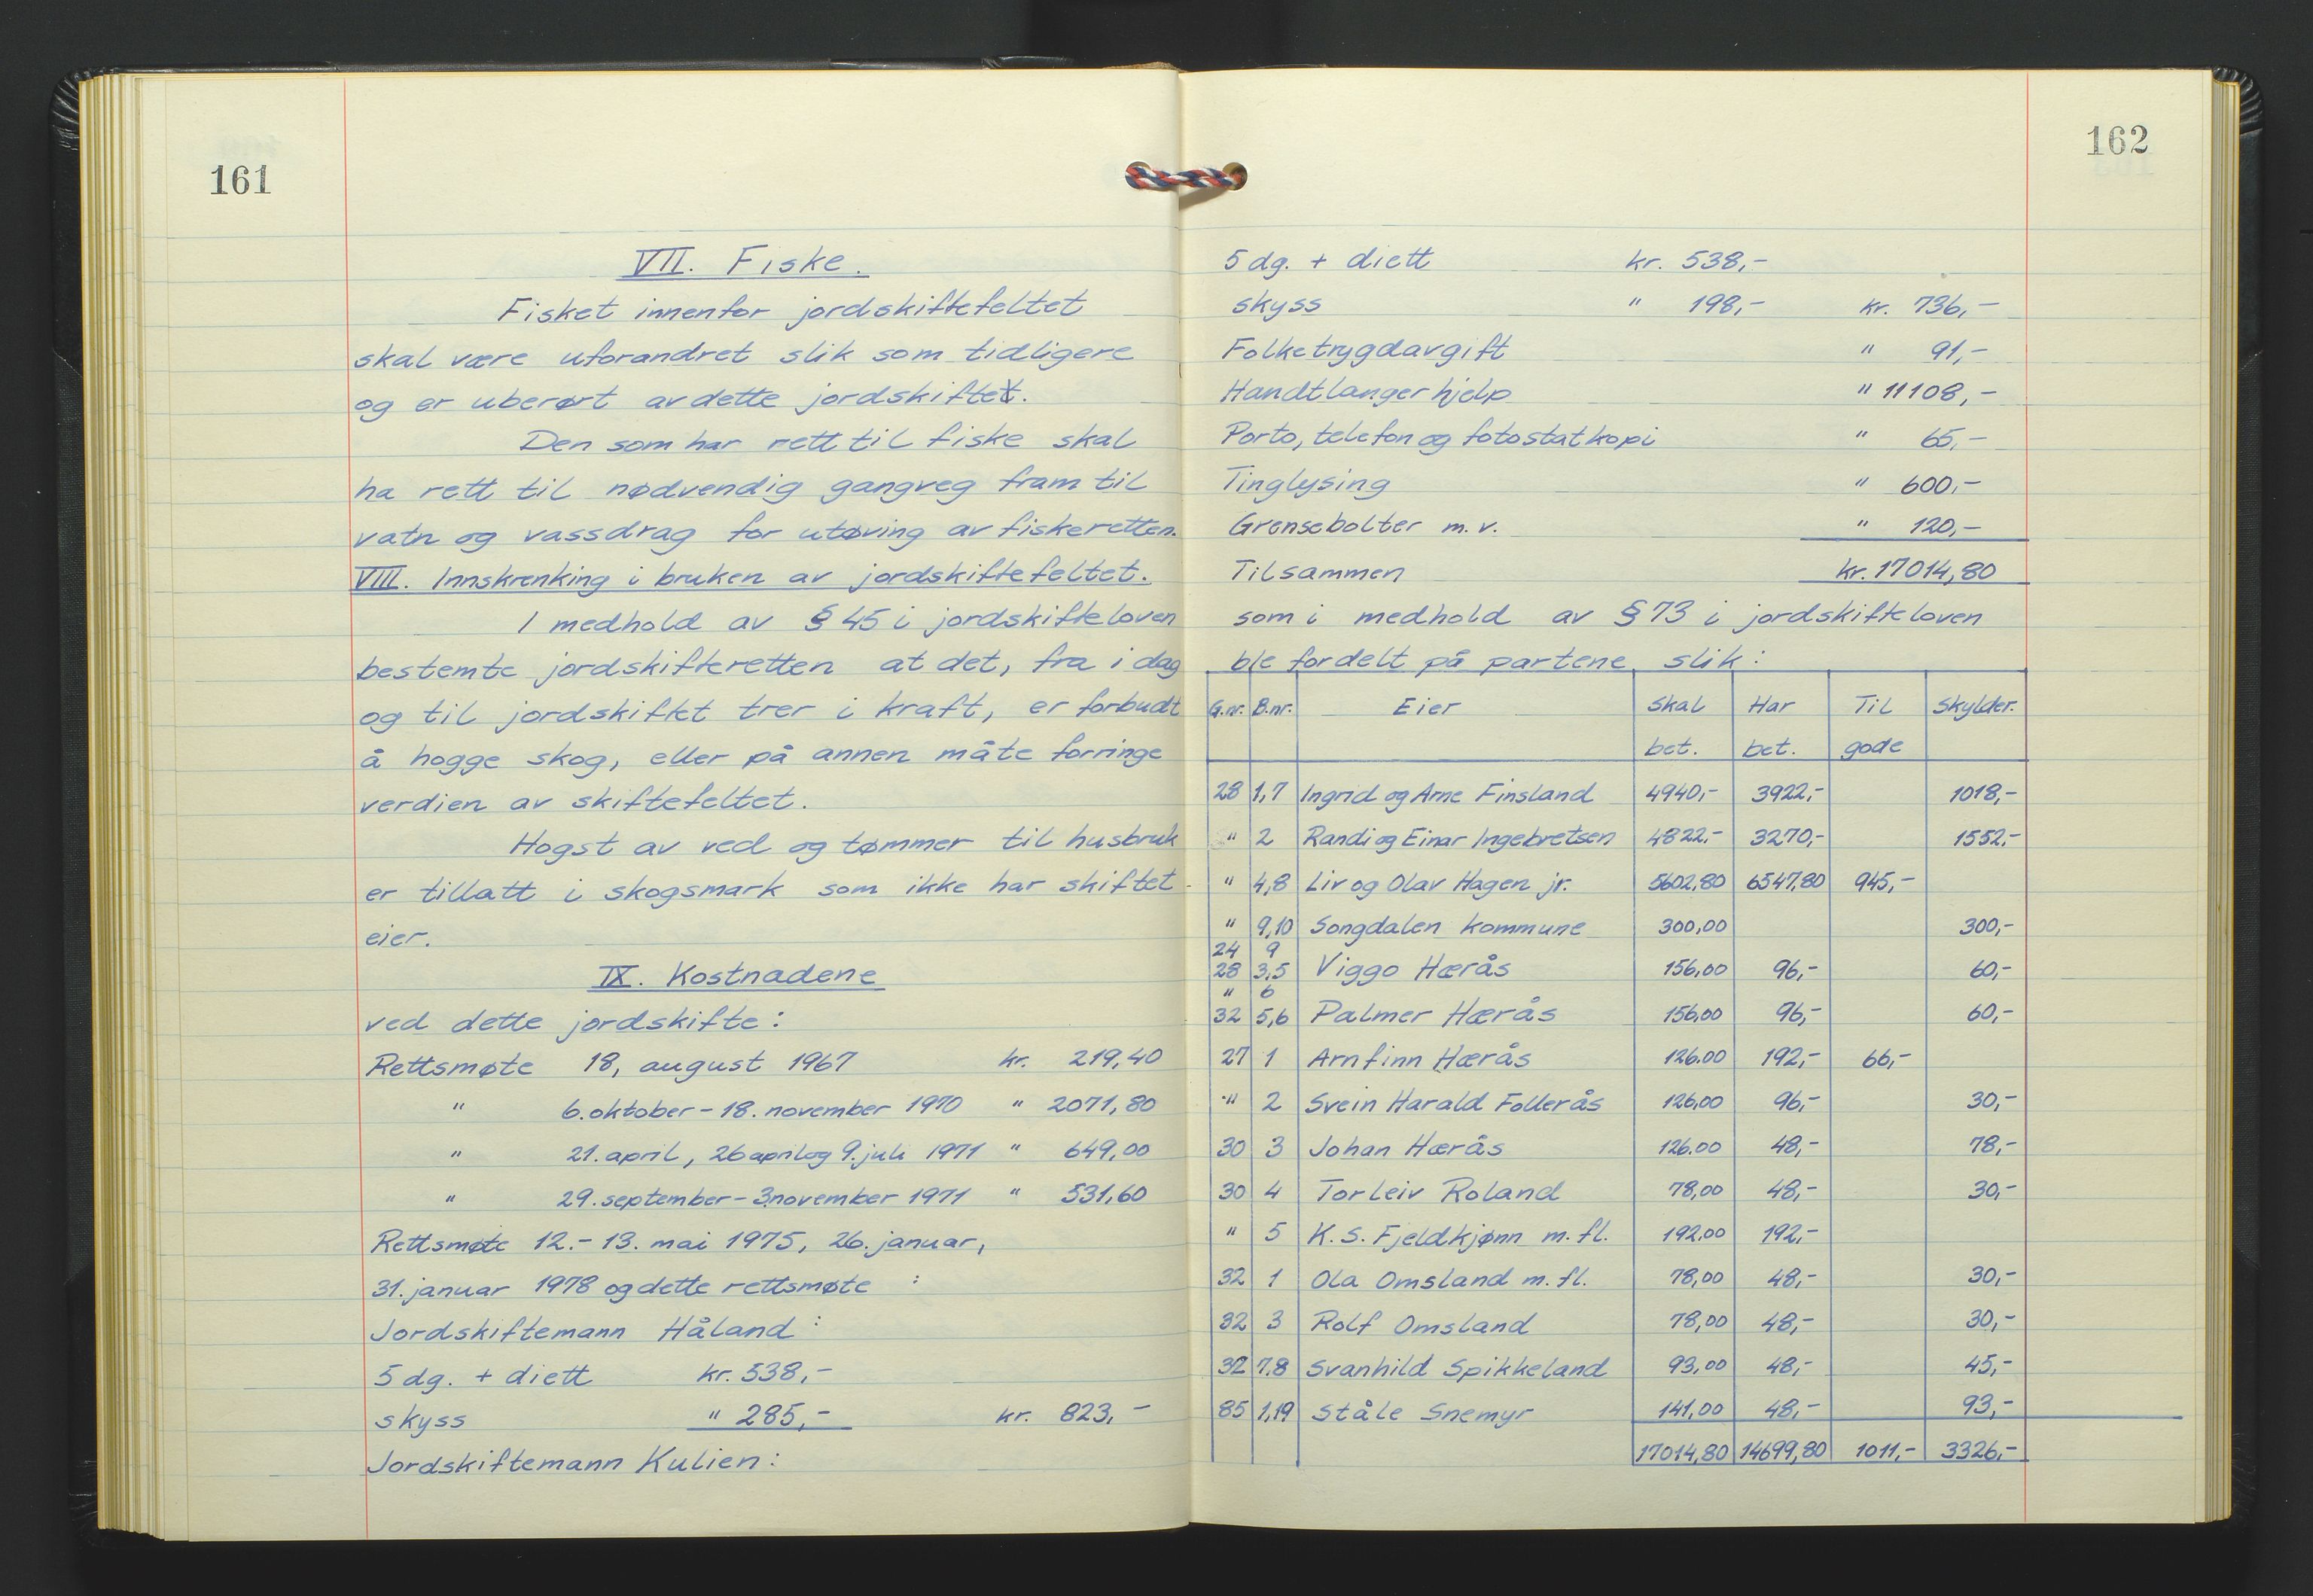 161
VII. Fiske.
Fisket innenfor jordskiftefeltet
skal være uforandret slik som tidligere
og er uberørt av dette jordskiftet.
Den som har rett til fiske skal
ha rett til nødvendig gangveg fram til
vatn og vassdrag for utøving av fiskeretten.
VIII. Innskrenking i bruken av jordskiftefeltet.
I medhold av § 45 i jordskifteloven
bestemte jordskifteretten at det, fra i dag
og til jordskiftet trer i kraft, er forbudt
å hogge skog, eller på annen måte forringe
verdien av skiftefeltet.
Hogst av ved og tømmer til husbruk
er tillatt i skogsmark som ikke har skiftet
eier.
IX. Kostnadene
ved dette jordskifte:
Rettsmøte 18, august 1967 kr. 219,40
" 6. oktober - 18. november 1970 " 2071,80
" 21. april, 26 april og 9. juli 1971 " 649,00
" 29. september - 3. november 1971 " 531,60
Rettsmøte 12.- 13. mai 1975, 26. januar,
31. januar 1978 og dette rettsmøte :
Jordskiftemann Håland :
5 dg. + diett kr. 538,-
skyss " 285,- kr. 823,-
Jordskiftemann Kulien:
162
5 dg. + diett kr. 538,-
skyss " 198,- kr. 736,-
Folketrygdavgift " 91,-
Handtlangerhjelp " 11108,-
Porto, telefon og fotostatkopi " 65,-
Tinglysing " 600,-
Grensebolter m.v. " 120,-
Tilsammen kr. 17014,80
som i medhold av § 73 i jordskifteloven
ble fordelt på partene slik:
G.nr. B.nr. Eier Skal Har Til Skylder.
bet. bet. gode
28 1,7 Ingrid og Arne Finsland 4940,- 3922,- 1018,-
" 2 Randi og Einar Ingebretsen 4822,- 3270,- 1552,-
" 4,8 Liv og Olav Hagen jr. 5602,80 6547,80 945,-
" 9,10 Songdalen kommune 300,00 300,-
24 9
28 3,5 Viggo Hærås 156,00 96,- 60,-
" 6
32 5,6 Palmer Hærås 156,00 96,- 60,-
27 1 Arnfinn Hærås 126.00 192,- 66,-
" 2 Svein Harald Follerås 126,00 96,- 30,-
30 3 Johan Hærås 126.00 48,- 78,-
30 4 Torleiv Roland 78,00 48,- 30,-
" 5 K. S. Fjeldkjønn m. fl. 192.00 192,-
32 1 Ola Omsland m. fl. 78,00 48,- 30,-
32 3 Rolf Omsland 78,00 48,- 30,-
32 7.8 Svanhild Spikkeland 93,00 48,- 45,-
85 1,19 Ståle Snemyr 141,00 48,- 93,-
17014,80 14699,80 1011,- 3326,-